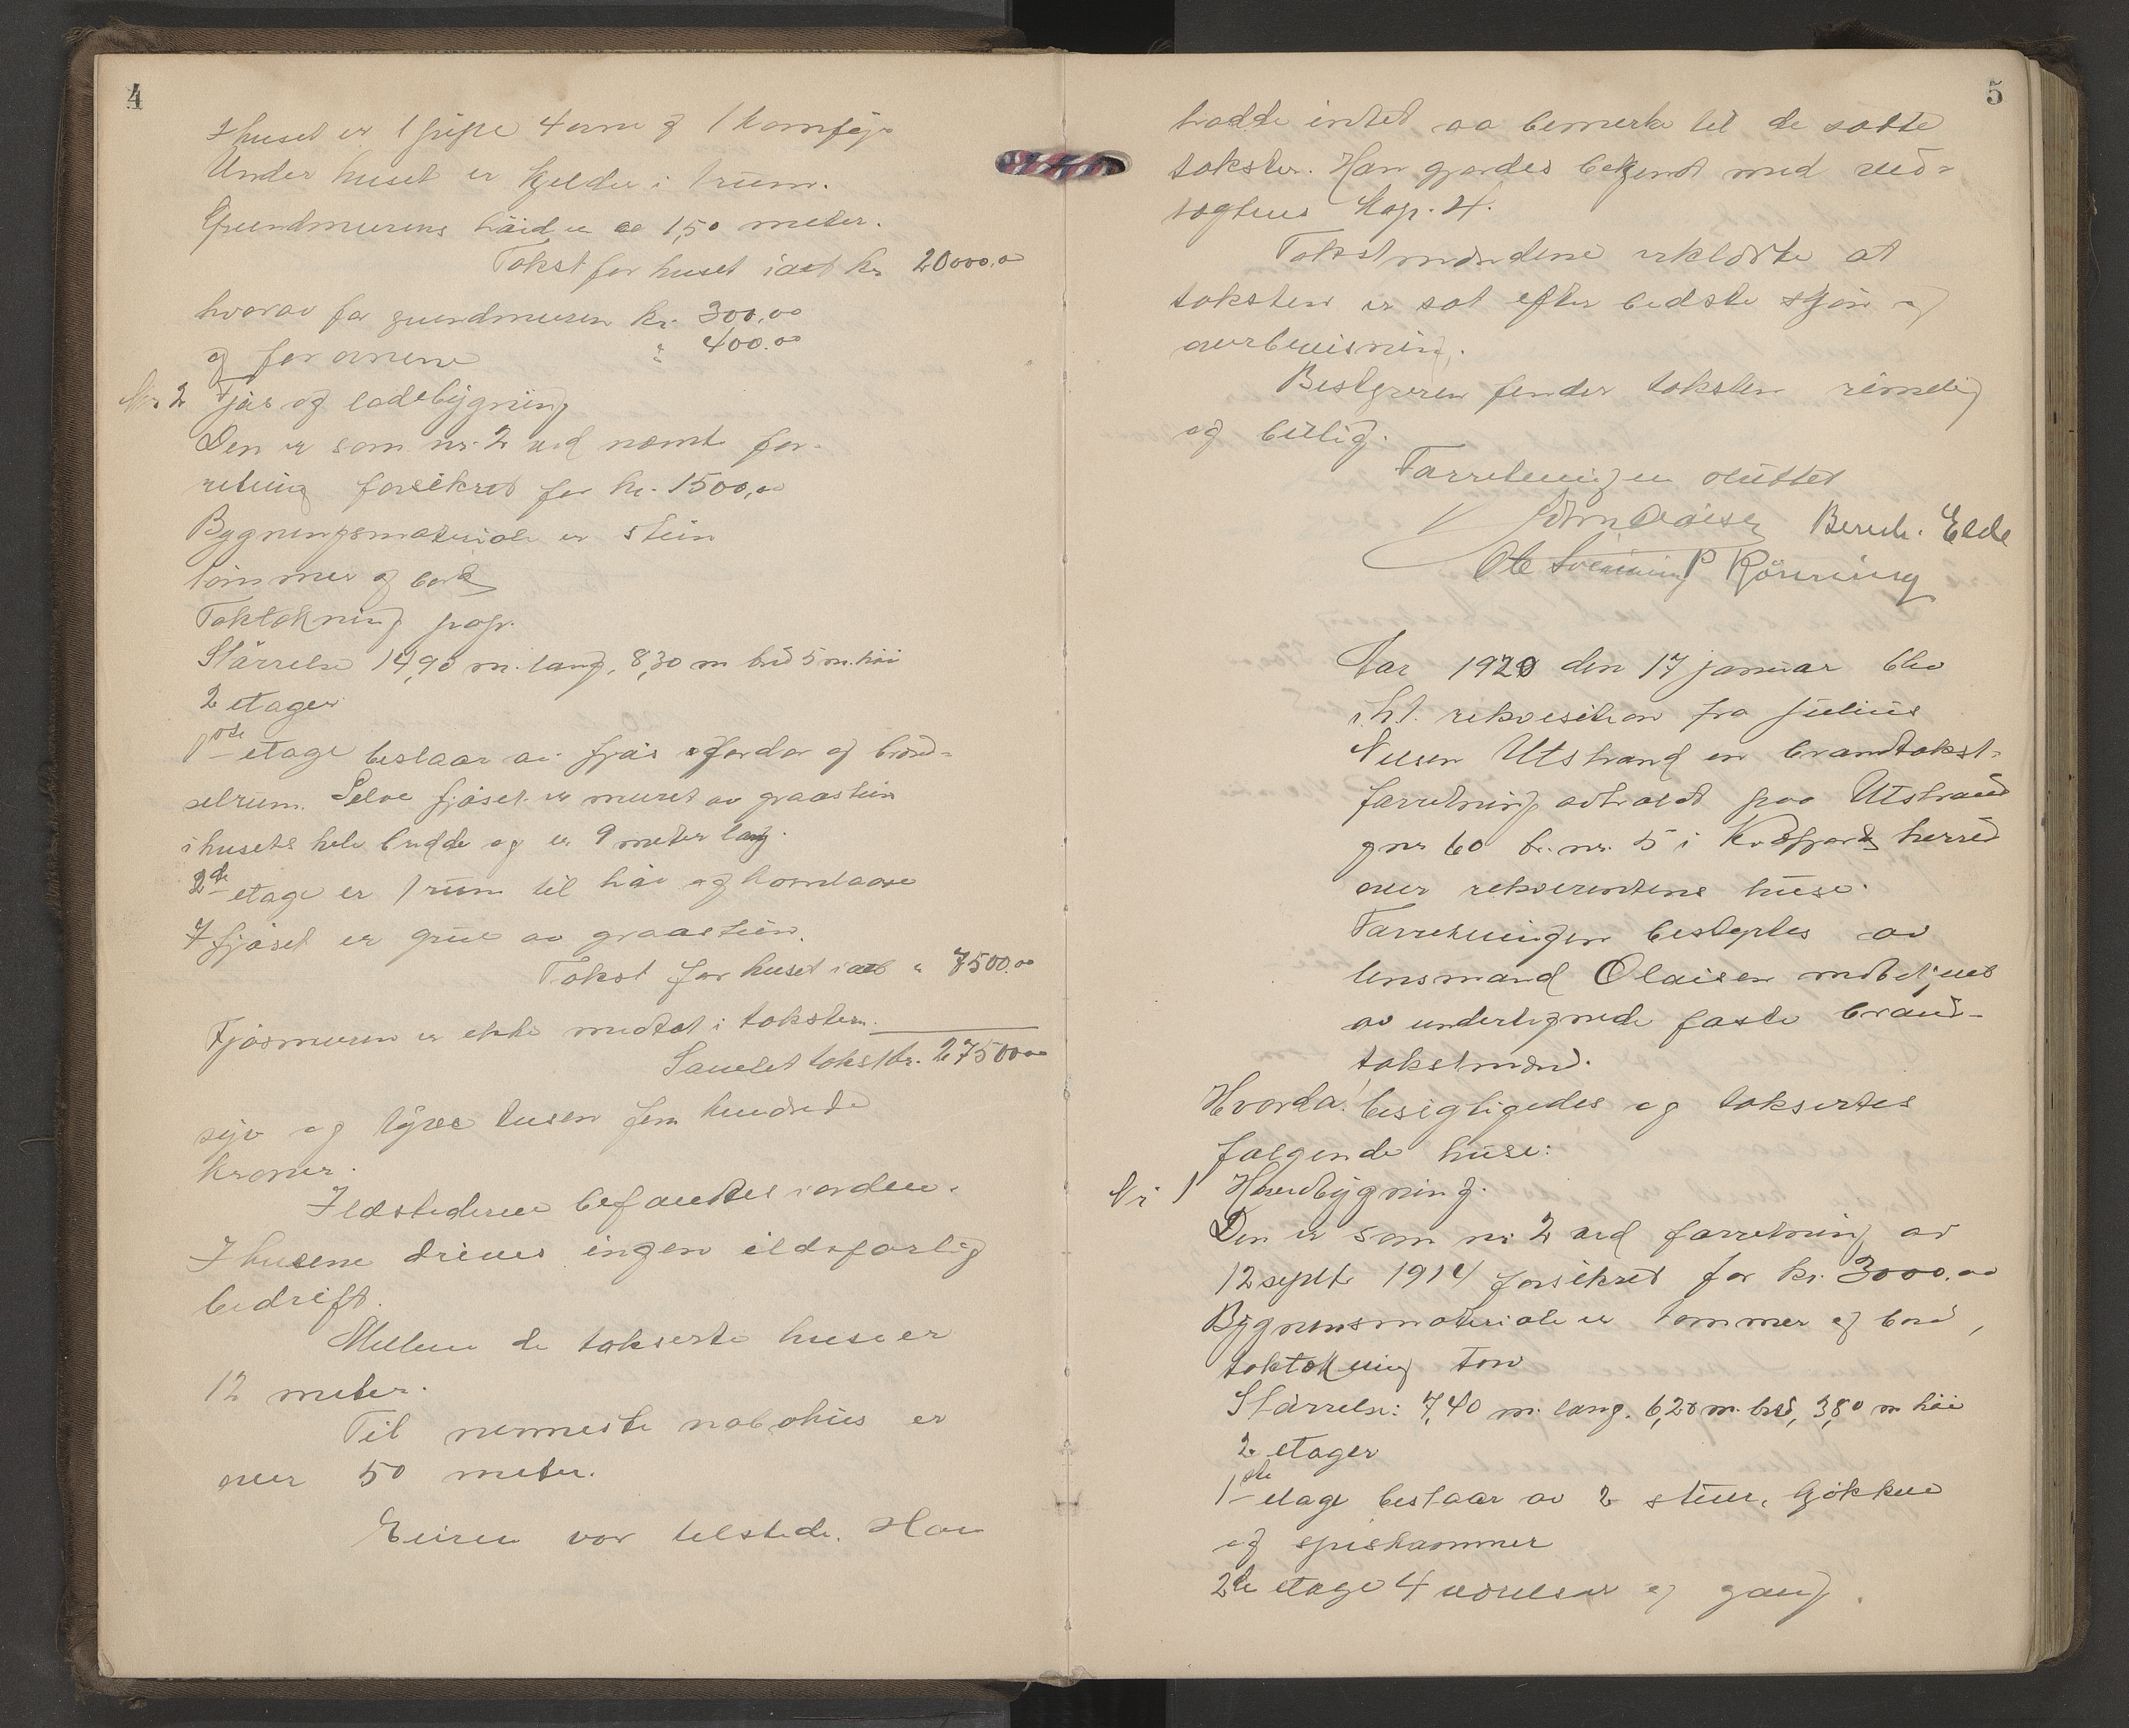 4
I huset er 1 pipe 4 ovne og 1 komfyr
Under huset er kjelder i 1 rum.
Grundmurens høide er 1,50 meter.
Takst for huset i alt kr. 20000.00
hvorav for grundmuren kr. 300.00
og for ovnene " 400.00
Nr. 2 Fjøs og ladebygning
Den er som nr. 2 ved nævnte for-
retning forsikret for kr. 1500,00
Bygningsmateriale er stein
tømmer og bord
Taktækning papp.
Størrelse 14,90 m. lang, 8,30 m bred 5 m. høi
2 etager
1ste etage bestaar av fjøs og brænd-
selrum. Selve fjøset er muret av graastein
i husets hele bredde og er 9 meter lang.
2de etage er 1 rum til høi og kornlaave
I fjøset er grue av graastein.
Takst for huset i alt " 7500.00
Fjøsmuren er ikke medtat i taksten.
Samlet takst kr. 27500.00
syv og tyve tusen fem hundrede
kroner.
Ildstederne befandtes i orden.
I husene drives ingen ildsfarlig
bedrift.
Mellem de takserte huse er
12 meter.
Til nærmeste nabohus er
over 50 meter.
Eieren var tilstede. Han
5
hadde intet aa bemerke til de satte
takster. Han gjordes bekjendt med ved-
tægtens Kap. 4.
Takstmændene erklærte at
taksten er sat efter bedste skjøn og
overbevisning.
Bestyreren finder taksten rimelig
og billig.
Forretningen sluttet
Olaisen Bernh. Elde
Ole P Rønning
Aar 1920 den 17 januar blev
i h.t. rekvisition fra Julius
Nilsen Utstrand en brandtakst-
forretning avholdt paa Utstrand
gnr 60 br. nr. 5 i Kvæfjord herred
over rekvirentens huse.
Forretningen bestyrtes av
lensmand Olaisen med
av undertegnede faste brand-
takstmænd.
Hvorda besigtigedes og taksertes
følgende huse:
Nr 1 Hovedbygning.
Den er som nr 2 ved forretning av
12 septbr 1914 forsikret for kr. 3000.00
Bygningsmateriale er tømmer og bord,
taktækning torv
Størrelse: 7,40 m. lang. 6,20 m. bred, 3,80 m høi
2 etager
1ste etage bestaar av 2 stuer, kjøkken
og spiskammer
2de etage 4 værelser og gang.